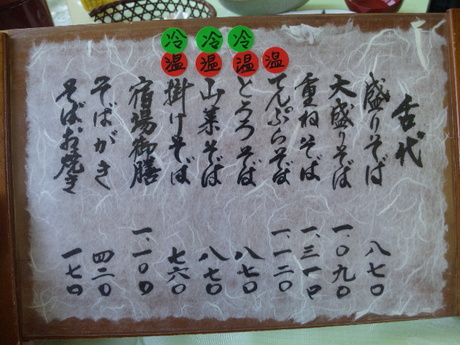 舌代
盛りそば 八七〇
大盛りそば 一、〇九〇
重ねそば 一、三一〇
温 てんぷらそば 一、一二〇
冷 温 とろろそば 八七〇
冷 温 山菜そば 八七〇
冷 温 掛けそば 七六〇
宿場御膳 一、一〇〇
そばがき 四二〇
そばお焼き 一七〇